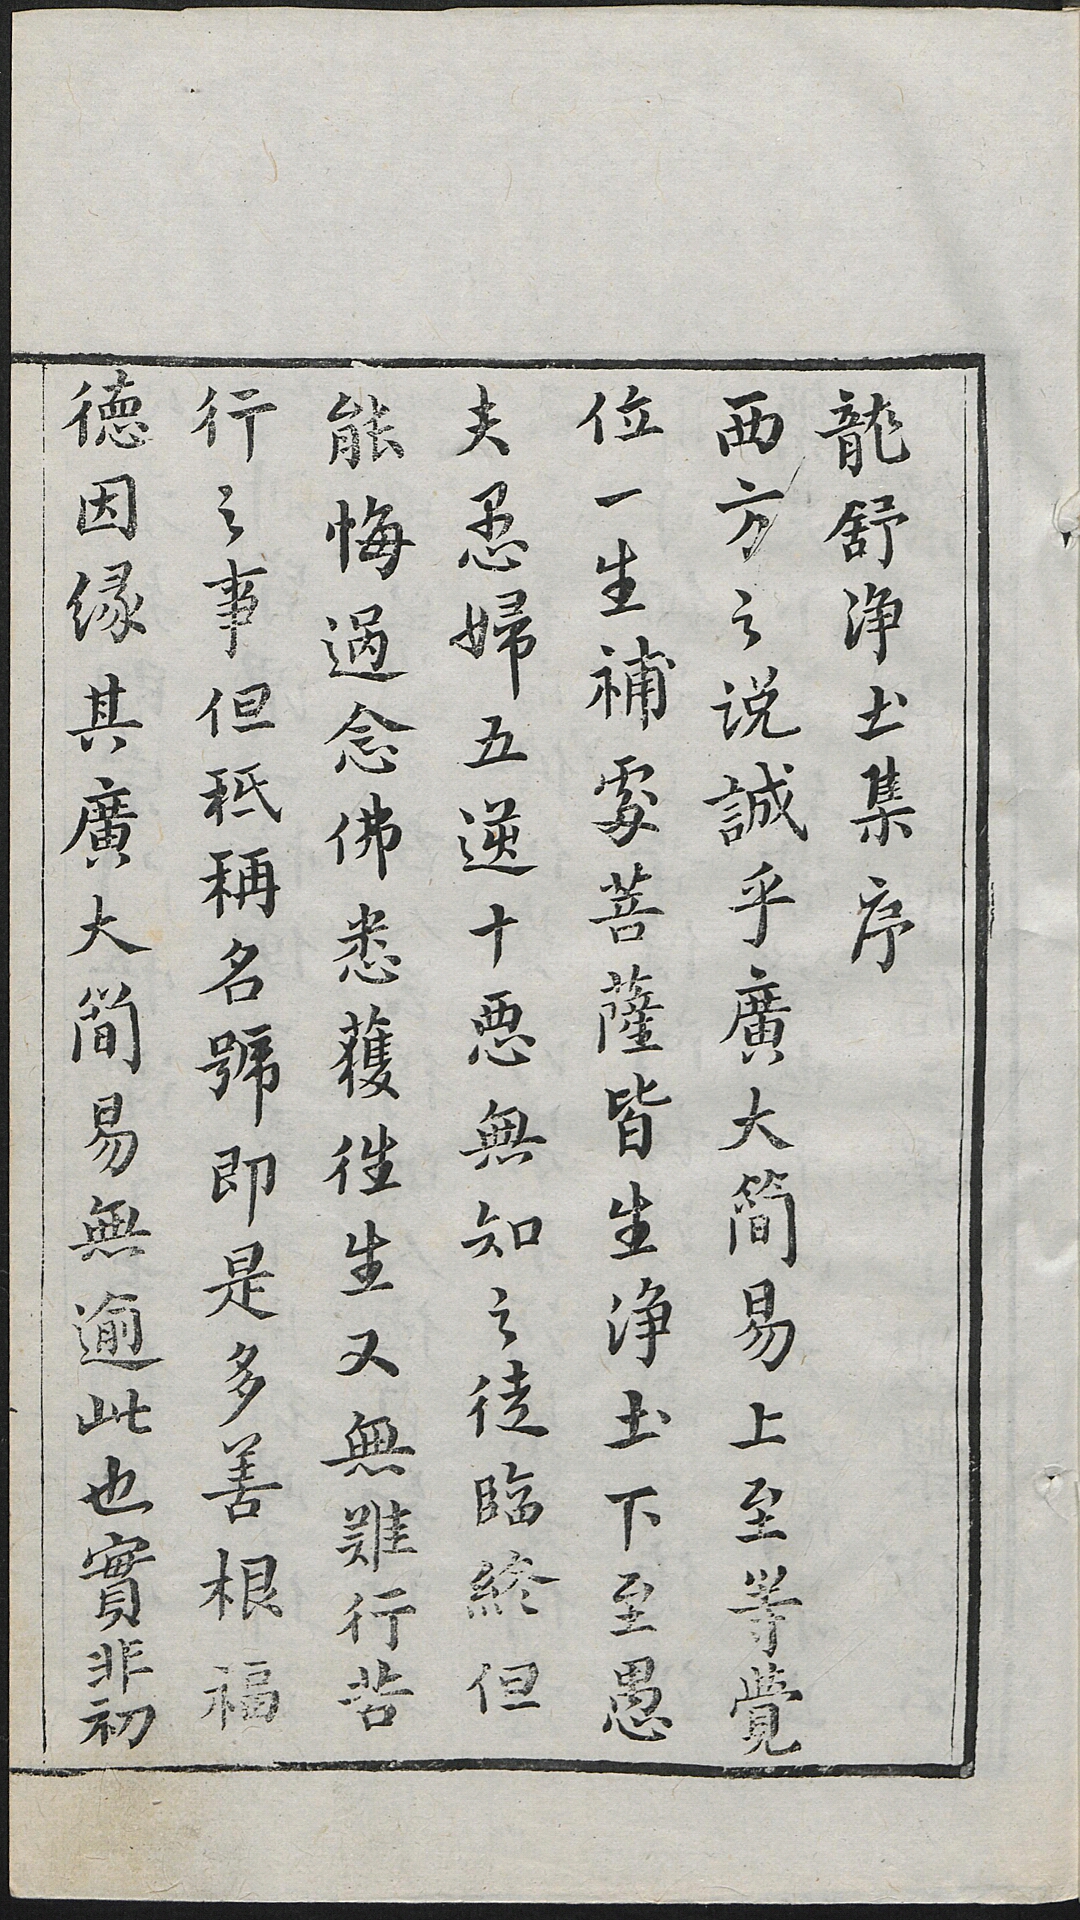 龍舒浄土集序
西方之説誠乎廣大簡易上至等覺
位一生補處菩薩皆生浄土下至愚
夫愚婦五逆十惡無知之徒臨終但
能悔過念佛悉獲徃生又無難行苦
行之事但秖稱名號即是多善根福
德因縁其廣大簡易無逾此也實非初